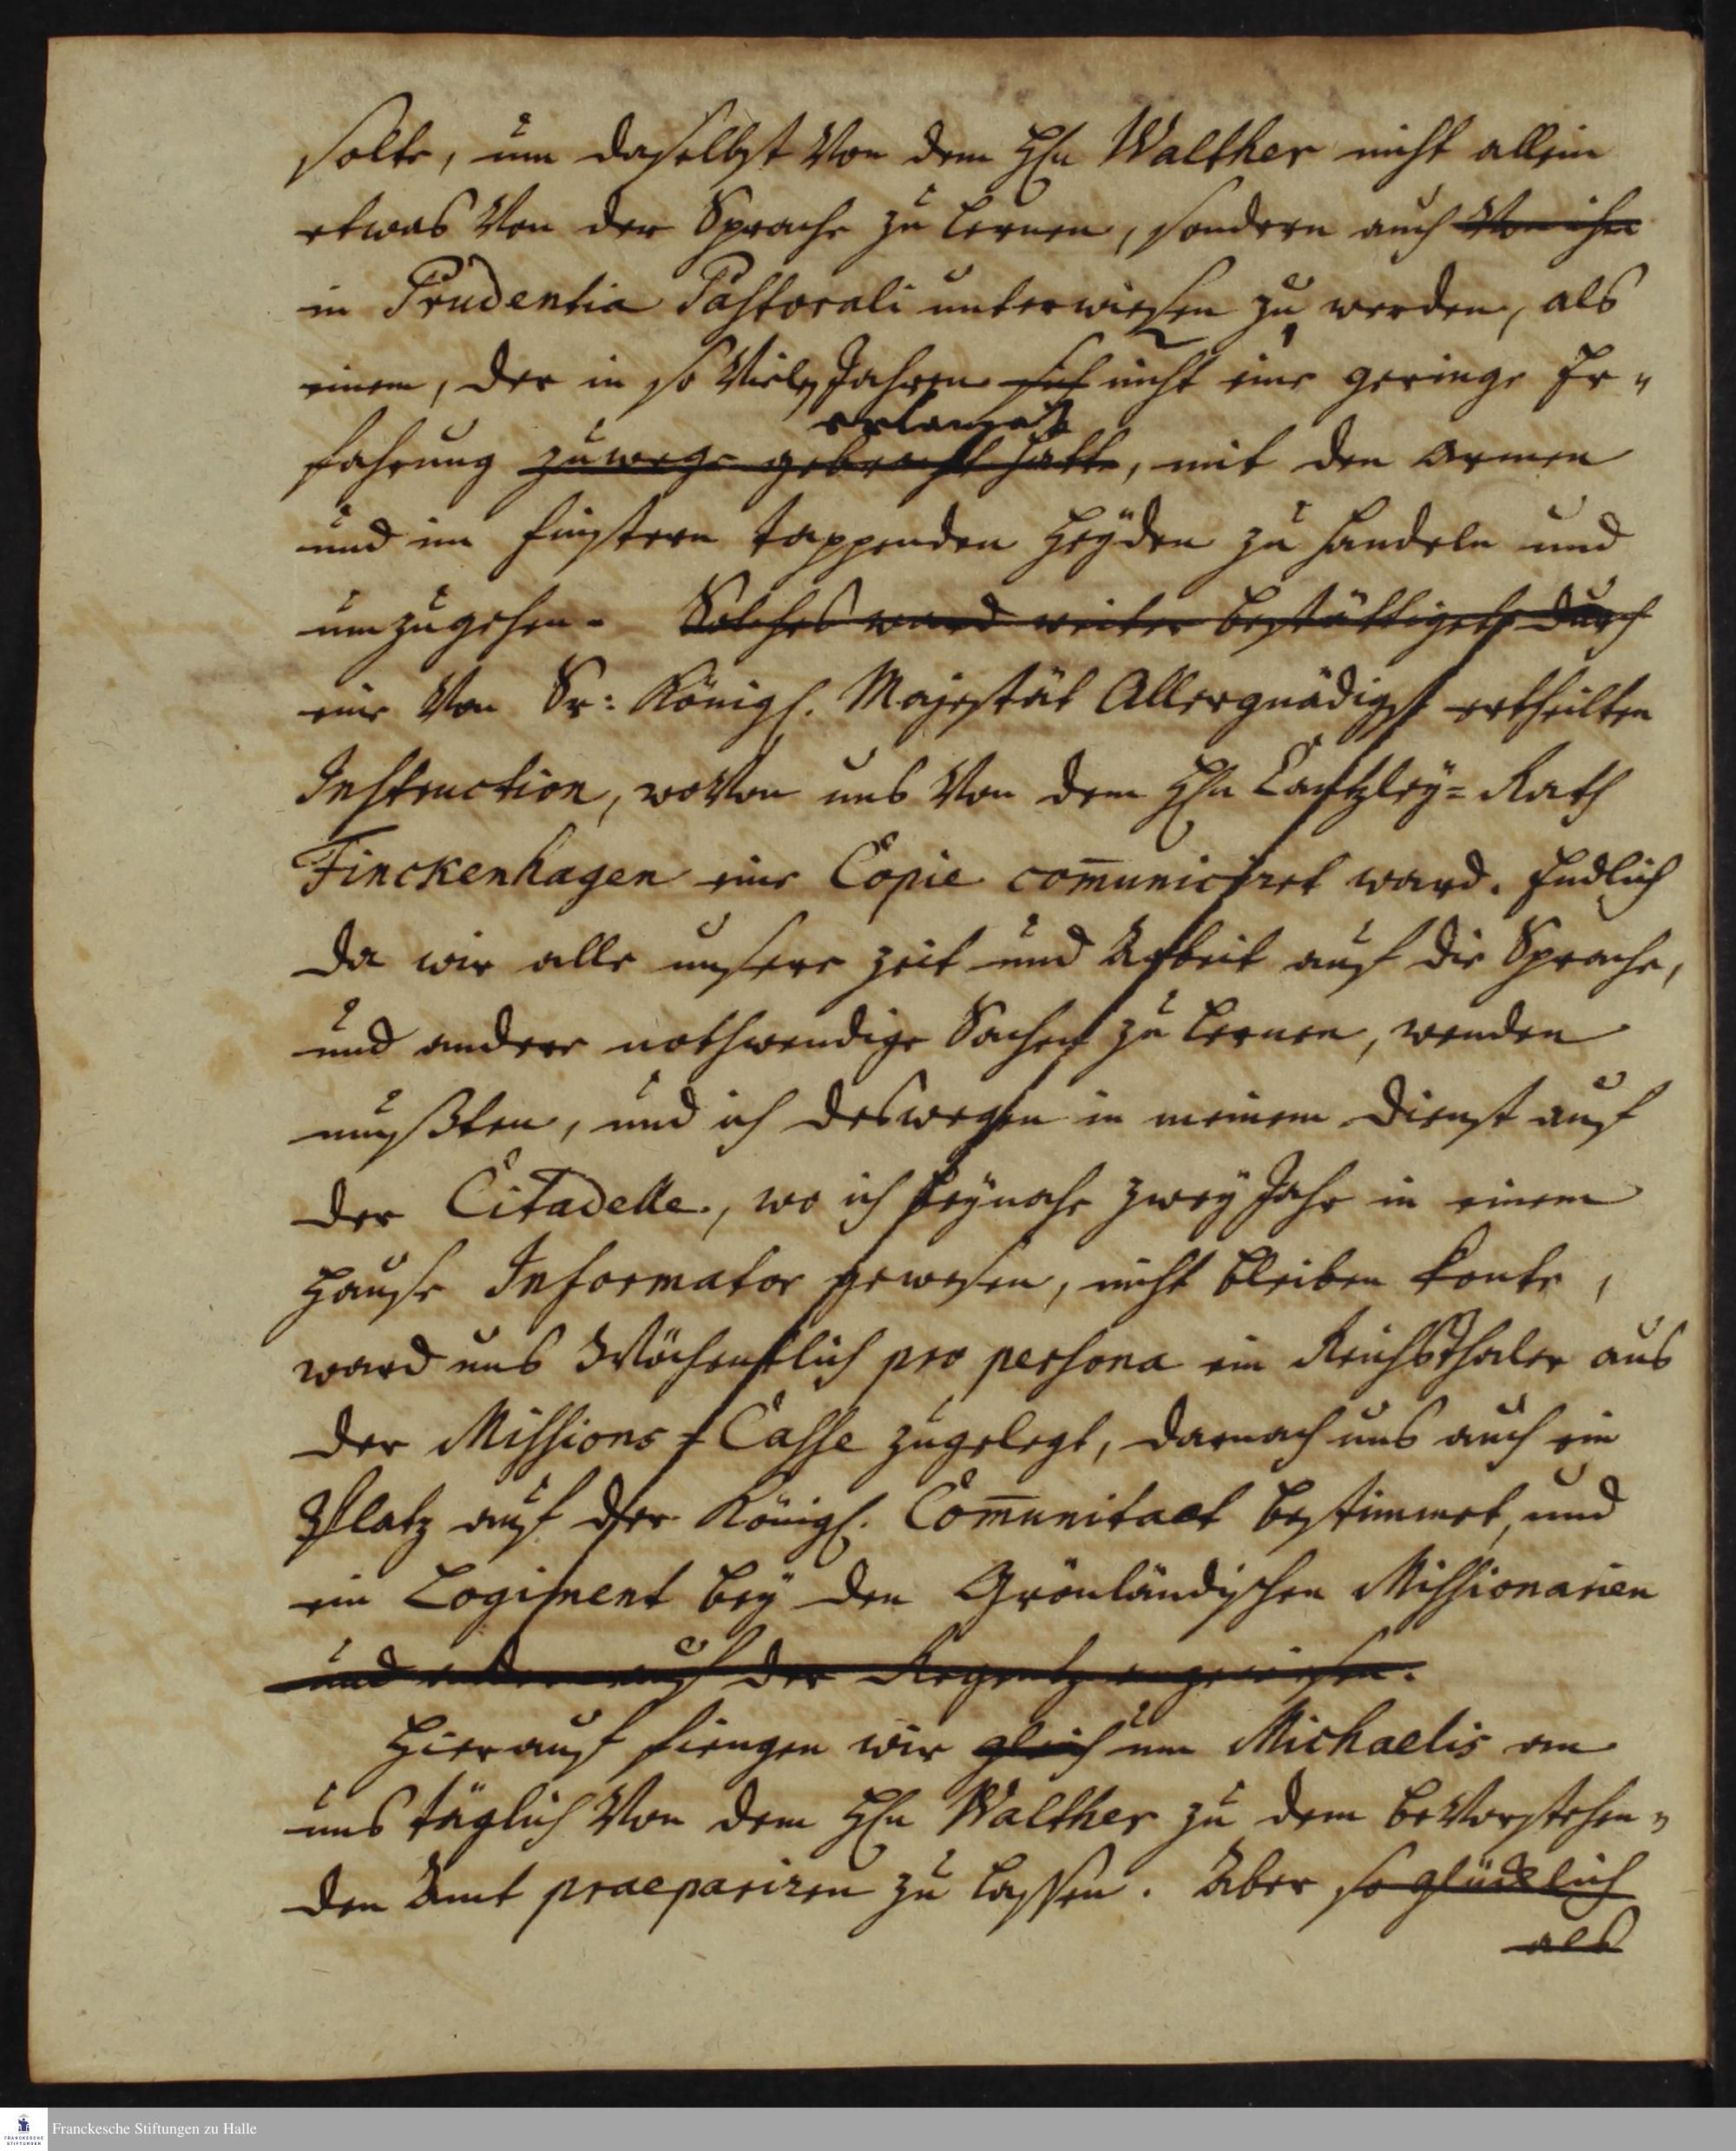 solte, um daselbst Von dem Hℓn Walther nicht allein
etwas Von der Sprache zu lernen, sondern auch Von ihm
in Prudentia Pastorali unterwiesen zu werden, als
einem, der in so Vielen Jahren sich nicht eine geringe Er-
erlanget
fahrung zuwege gebracht hatte, mit den armen
und im finstern tappenden Heÿden zu handeln und
umzugehen. Solches ward weiter bestättiget durch
eine Von Sr: Königl. Majestät Allergnädigst ertheilten
Instruction, woVon uns Von dem Hℓn Cantzleÿ-Rath
Finckenhagen eine Copie com̅uniciret ward. Endlich
da wir alle unsere Zeit und Arbeit auf die Sprache,
und andere nothwendige Sachen zu lernen, wenden
mußten, und ich deswegen in meinem Dienst auf
der Citadelle, wo ich beÿnahe zweÿ Jahr in einem
Hause Informator gewesen, nicht bleiben konte,
ward uns Wöchentlich pro persona ein Reichsthaler aus
der Missions-Casse zugelegt, darnach uns auch ein
Platz auf der Königl. Com̅unitaet bestimmet, und
ein Logiment beÿ den Grönländischen Missionarien
und auf der Regentz angewiesen.
Hierauf fiengen wir gleich um Michaelis an
uns täglich Von dem Hℓn Walther zu dem beVorstehen-
den Amt praepariren zu lassen. Aber so glücklich
als
Franckesche Stiftungen zu Halle